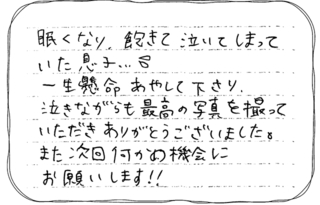 眠くなり、飽きて泣いてしまって
いた息子…
一生懸命あやして下さり、
泣きながらも最高の写真を撮って
いただきありがとうございました。
また次回何かの機会に
お願いします!!